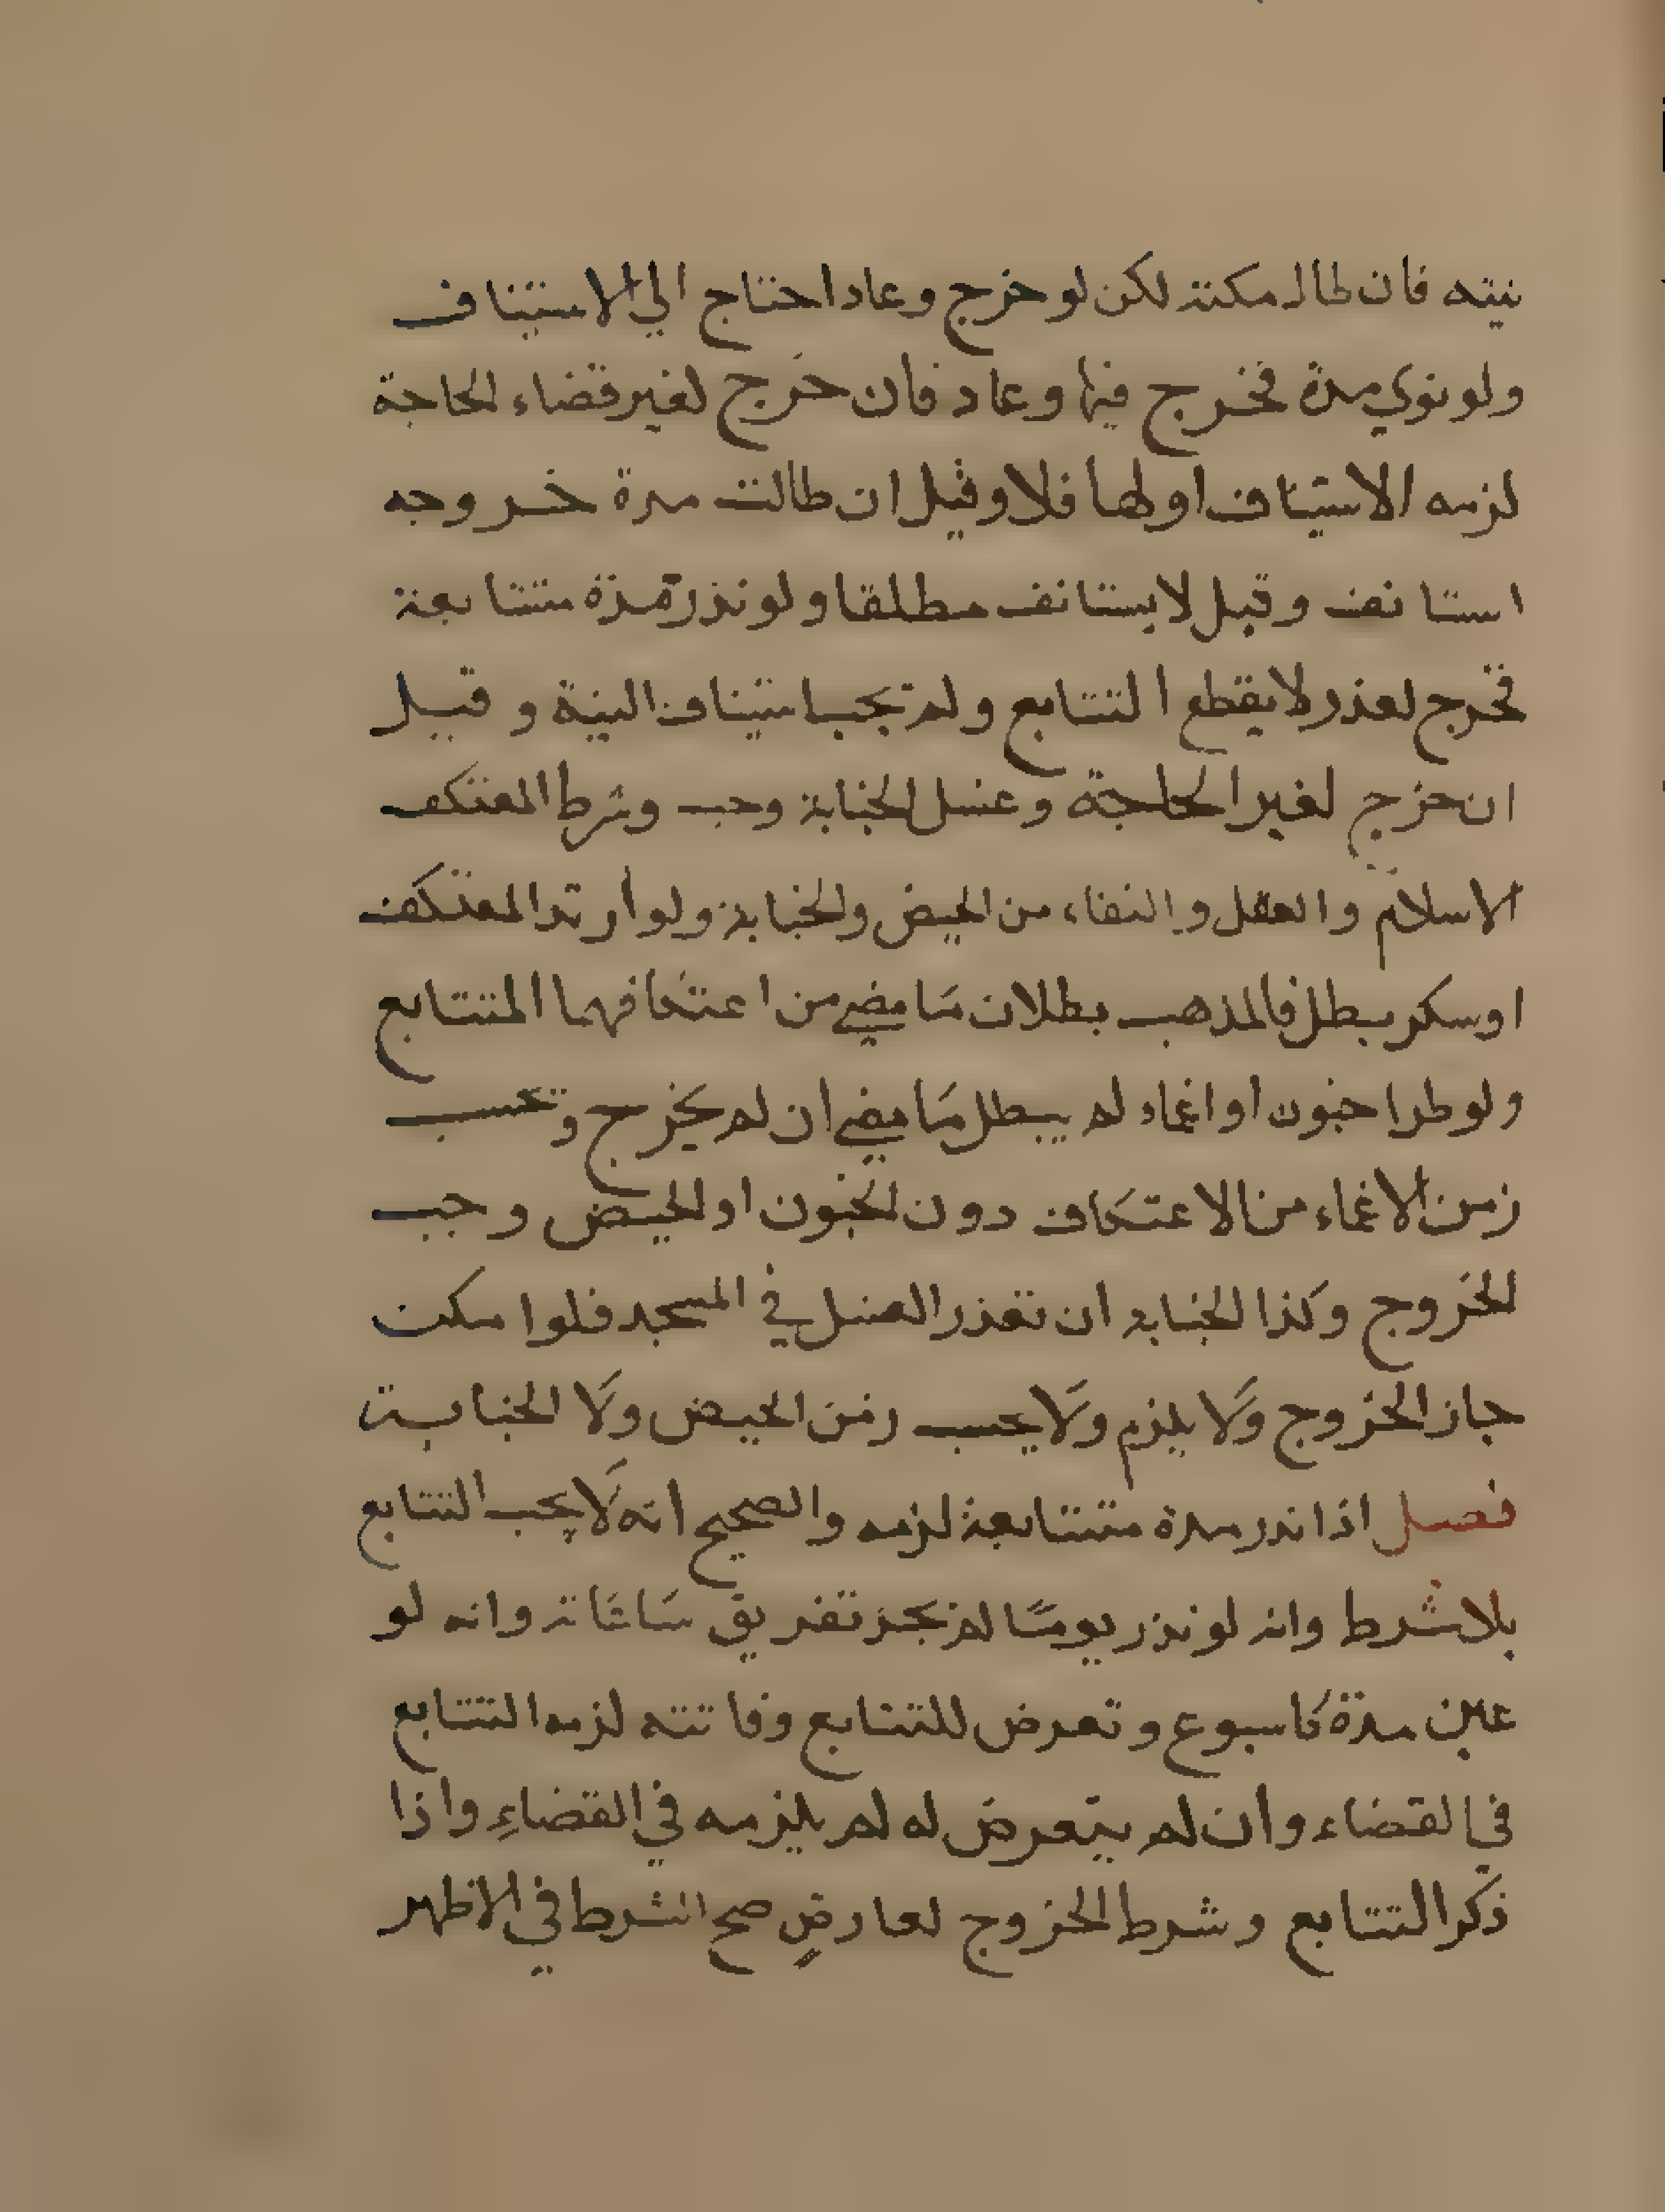 نيته فان طال مكثه لكن لو خرج وعاد احتاج الي الاستيناف
ولو نوي مدة فخرج فيها وعاد فان خرج لغير قضاء الحاجة
لزمه الاستيناف اولها فلا وقيل ان طالت مدة خروجه
استانف وقيل لا يستانف مطلقا ولو نذر مدة متتابعة
فخرج لعذر لا يقطع التتابع ولم يجب استيناف النية وقيل
ان خرج لغير الحاجة وغسل الجنابة وجب وشرط المعتكف
الاسلام والعقل والنقاء من الحيض والجنابة ولو ارتد المعتكف
او سكر بطل فالمذهب بطلان ما مضي من اعتكافهما المتتابع
ولو طرا جنون او اغماء لم يبطل ما مضي ان لم يخرج وتحسب
زمن الاغماء من الاعتكاف دون الجنون او الحيض وجب
الخروج وكذا الجنابة ان تعذر الغسل في المسجد فلو امكن
جاز الخروج ولا يلزم ولا يحسب زمن الحيض ولا الجنابة
فصل اذا نذر مدة متتابعة لزمه والصحيح انه لا يجب التتابع
بلا شرط وانه لو نذر يوما لم يجز تفريق ساعاته وانه لو
عين مدة كاسبوع وتعرض للتتابع وفاتته لزمه التتابع
في القضاء وان لم يتعرض له لم يلزمه في القضاء واذا
ذكر التتابع وشرط الخروج لعارض صح الشرط في الاظهر